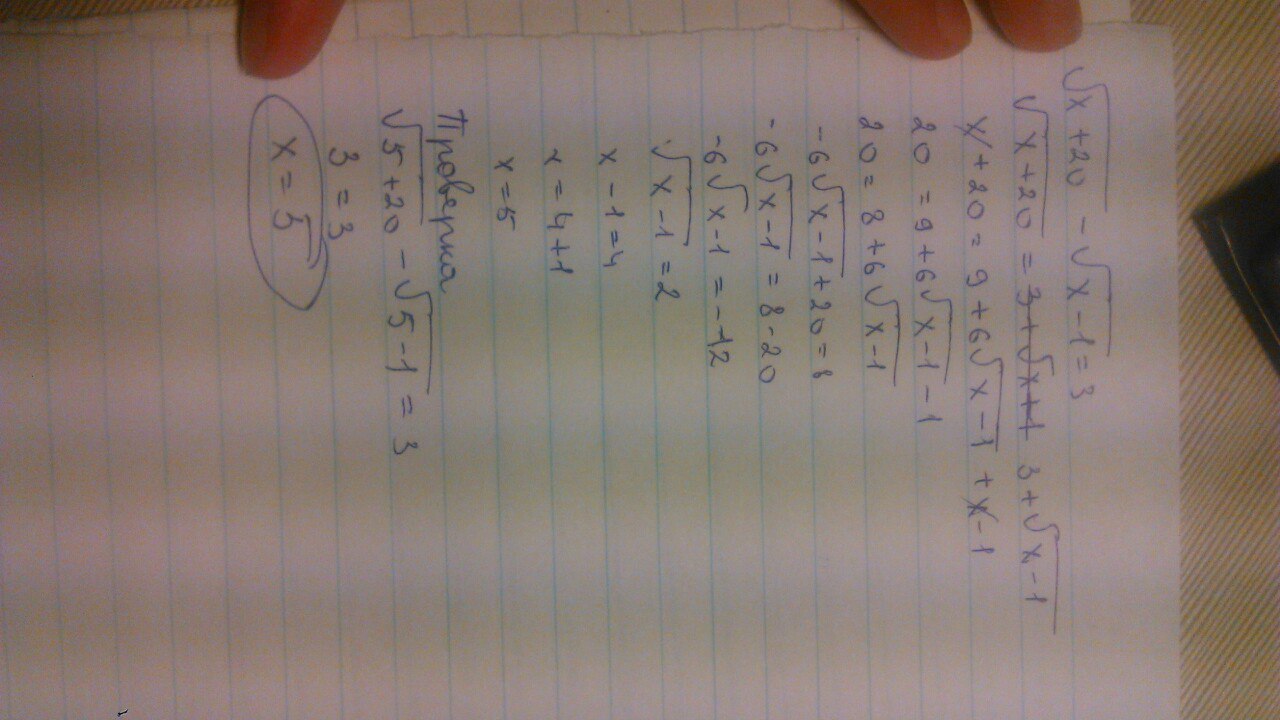 √x+20 - √x-1 = 3
√x+20 = 3+√x+1 3+√x-1
x+20 = 9+6√x-1 +x-1
20 = 9+6√x-1 -1
20 = 8+6√x-1
-6√x-1+20=8
-6√x-1 = 8-20
-6√x-1 = -12
√x-1 = 2
x-1=4
x=4+1
x=5
Проверка
√5+20 - √5-1 = 3
3=3
x=5